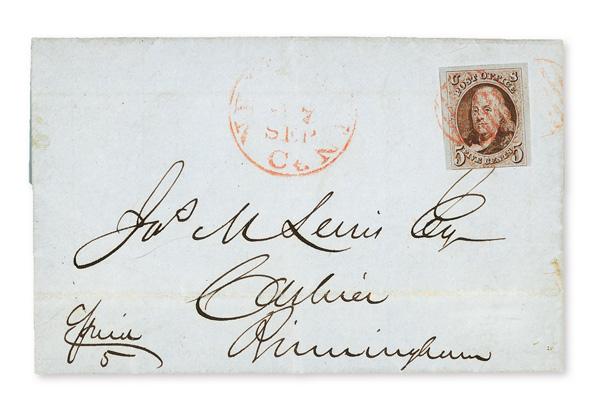 U S
POST OFFICE
5 FIVE CENTS 5
7
SEP
Jas M Lewis Esq
Cashier
Birmingham
5